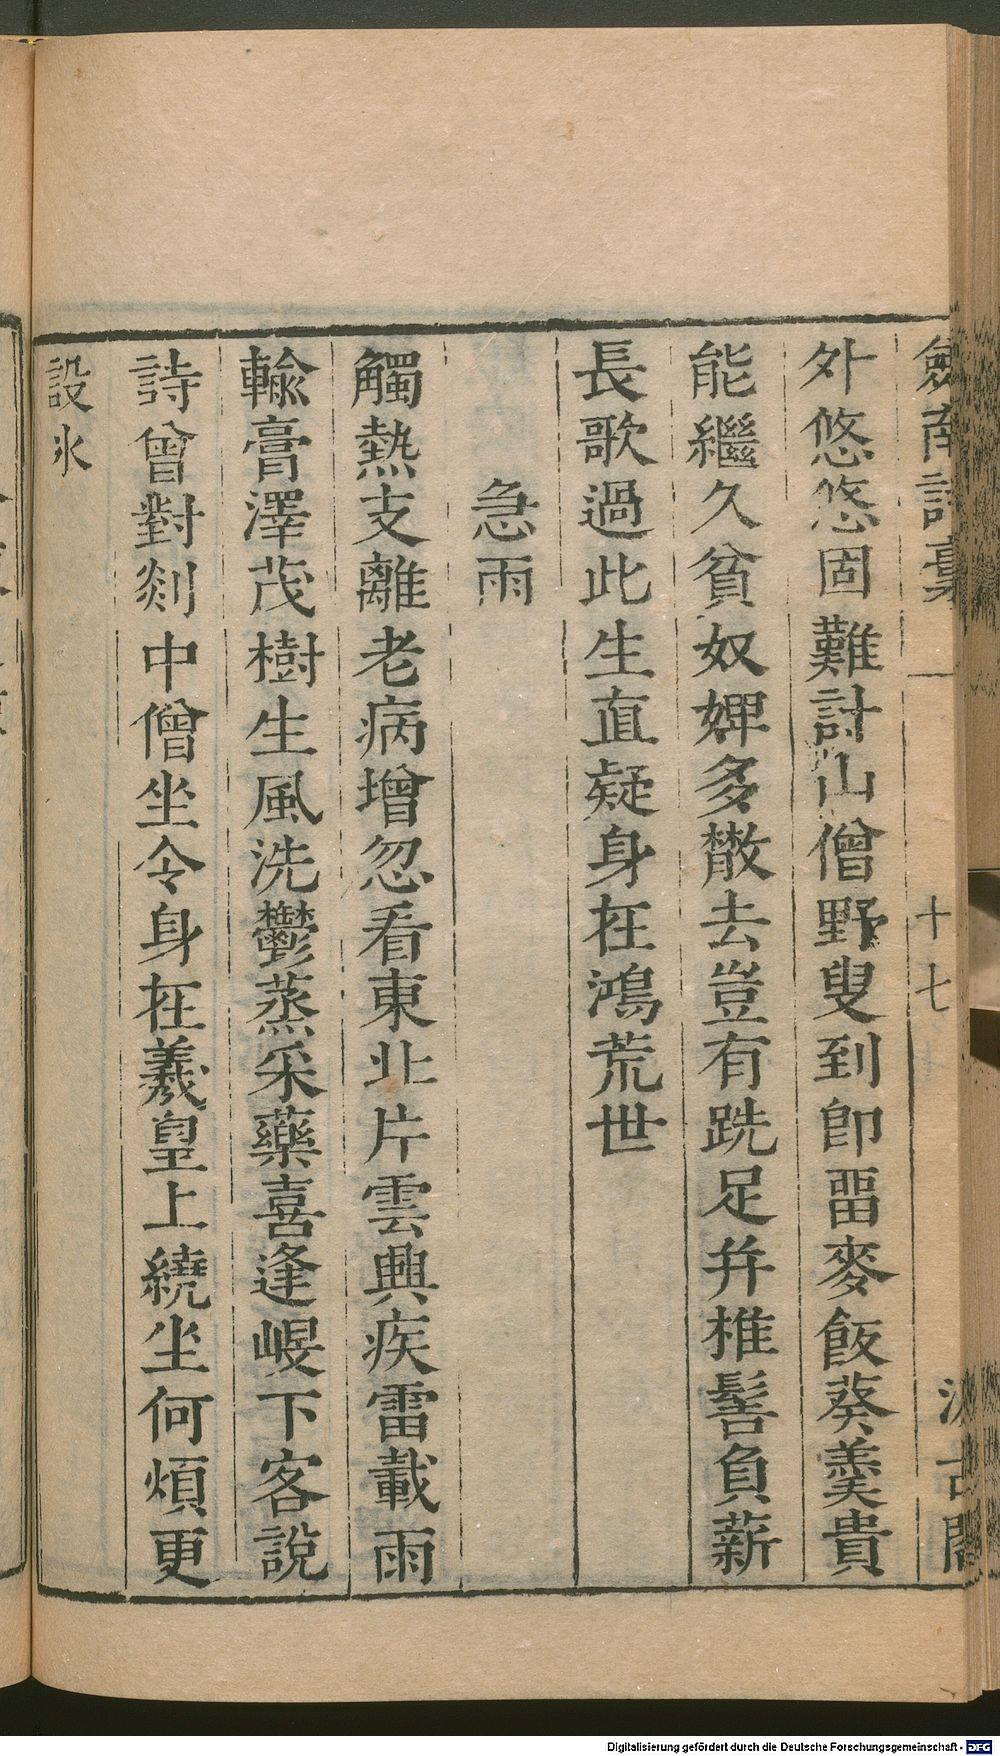 劒南詩稾 十七 汲古閣
外悠悠固難討山僧野叟到卽畱麥飯葵羹貴
能繼久貧奴婢多散去豈有跣足幷椎髻負薪
長歌過此生直疑身在鴻荒世
急雨
觸熱支離老病增忽看東北片雲興疾雷載雨
輸膏澤茂樹生風洗鬱蒸采藥喜逢㟭下客說
詩曾對剡中僧坐令身在羲皇上繞坐何煩更
設冰
Digitalisierung gefördert durch die Deutsche Forschungsgemeinschaft - DFG